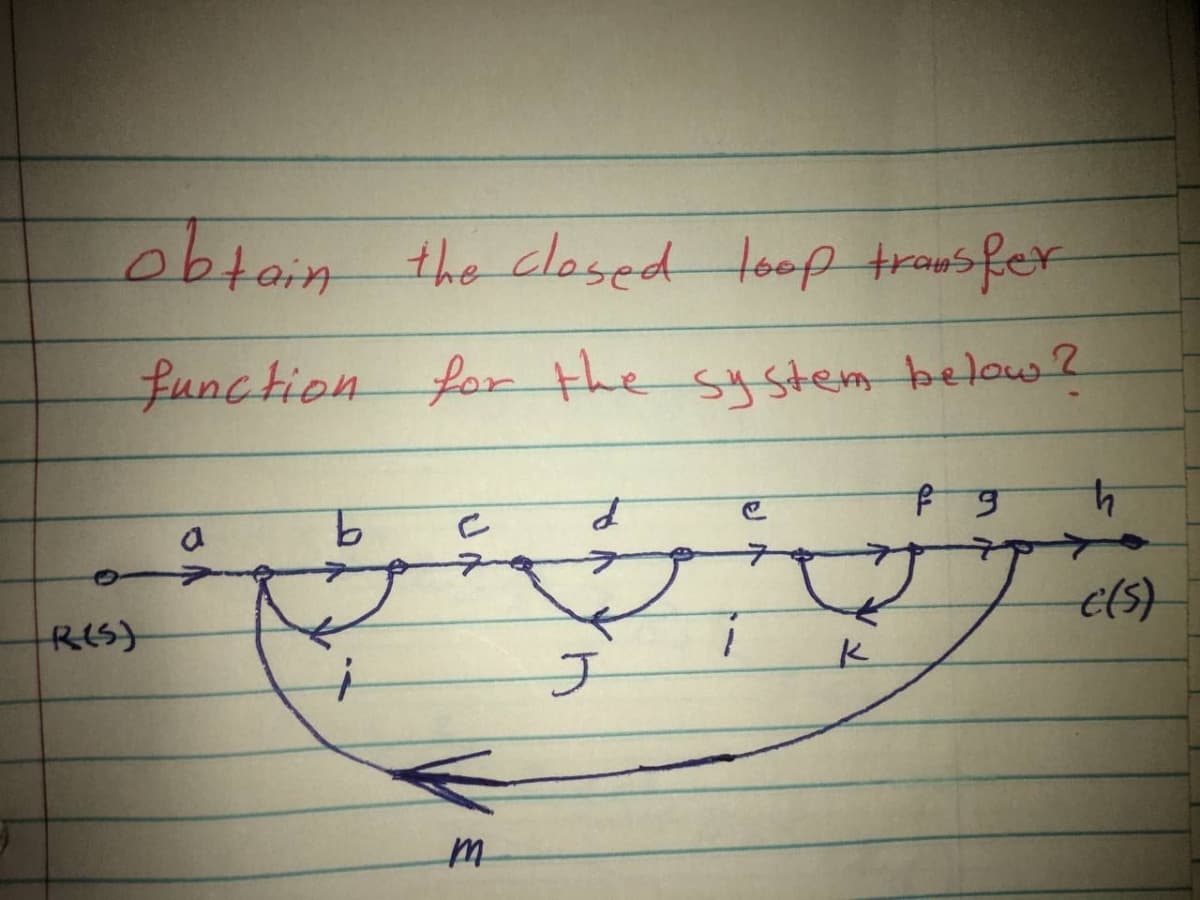 obtain the closed loop transfer
function for the system below?
a b c d e f g h
R(S) C(S)
i J i k
m